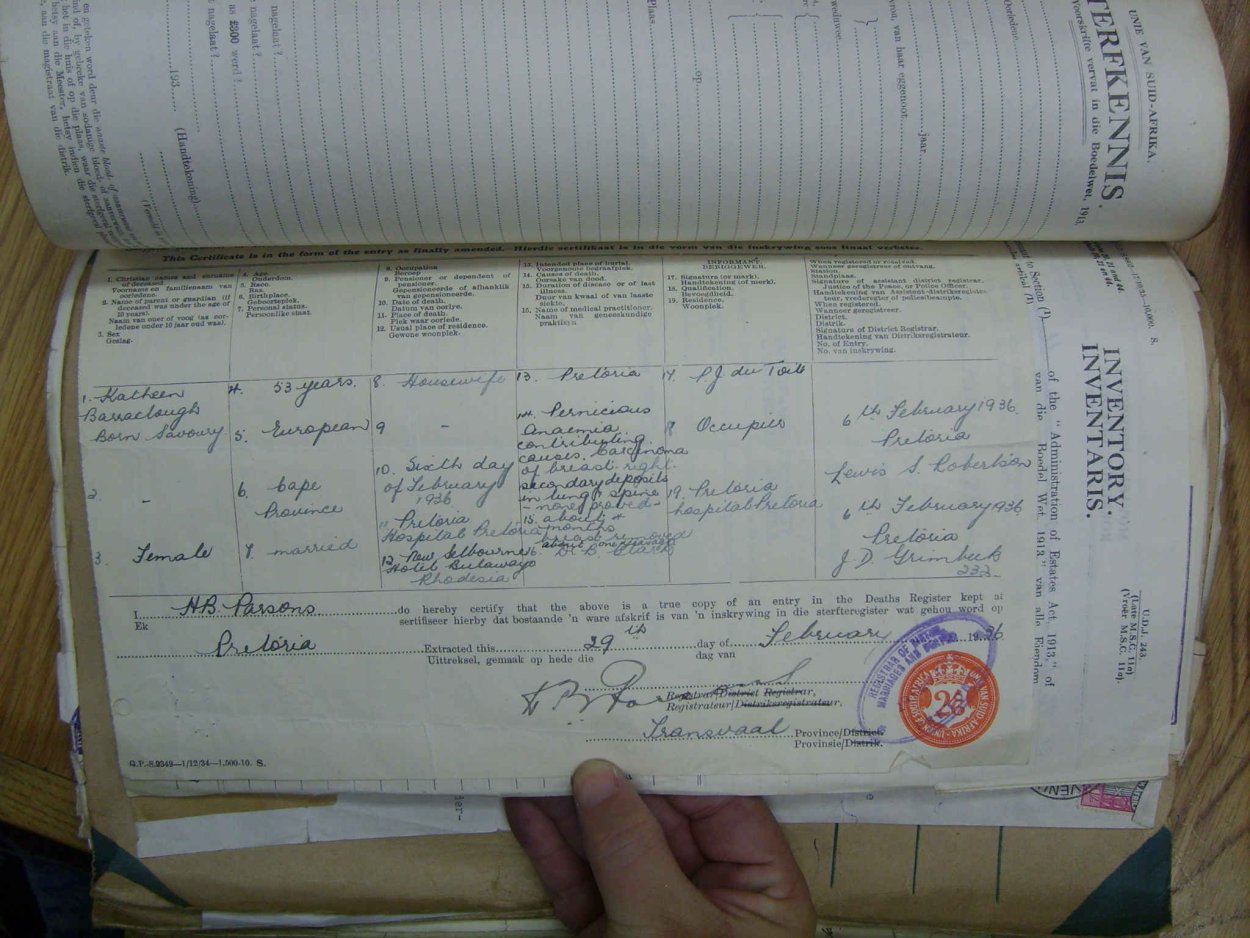 UNIE VAN SUID-AFRIKA.
STERFKENNIS.
Voorskrifte vervat in die Boedelwet, 1913
Oorledene
vrou, van haar eggenoot
jaar
weduwee
Plaas
op
nagelaat?
nagelaat?
as £300 werd?
nagelaat?
193
(Handtekening)
This Certificate is in the form of the entry as finally amended.- Hierdie sertifikaat is in die vorm van die inskrywing soos finaal verbeter.
1. Christian names and surname of deceased
Voorname en familienaam van oorledene.
2. Name of parent or guardian (if deceased was under the age of 10 years).
Naam van ouer of voog (as oorledene onder 10 jaar oud was).
3. Sex
Geslag.
4. Age.
Ouderdom.
5. Race.
Ras.
6. Birthplace.
Geboorteplek.
7. Personal status.
Persoonlike staat.
8. Occupation
Beroep
9. Pensioner or dependent of pensioner.
Gepensioneerde of afhanklik van gepensioneerde.
10. Date of death.
Datum van oorlye.
11. Place of death.
Plek waar oorlede.
12. Usual place of residence.
Gewone woonplek.
13. Intended place of burial.
Voorgenome begraafplek.
14. Causes of death.
Oorsake van dood.
15. Duration of disease or of last illness.
Duur van kwaal of van laaste siekte.
16. Name of medical practitioner.
Naam van geneeskundige praktisyn
INFORMANT.
BERIGGEWER.
17. Signature (or mark).
Handtekening (of merk).
18. Qualification.
Bevoegdheid.
19. Residence.
Woonplek.
When registered or received.
Wanneer geregistreer of ontvang.
Station.
Standplaas.
Signature of assistant district registrar, Justice of the Peace, or Police Officer.
Handtekening van Assistent-distriksregistrateur, vrederegter of polisiebeampte.
When registered.
Wanneer geregistreer.
District.
Distrik.
Signature of District Registrar.
Handtekening van Distriksregistrateur.
No. of Entry.
No. van inskrywing.
1. Katheen
Barraclough
Born Savoury
2. -
3. Female
4. 53 years.
5. European
6. Cape
Province
7. married
8. Housewife
9 -
10. Sixth day
of February
1936
11 Pretoria
Hospital Pretoria
12 New Selbourne
Hotel Bulawayo
Rhodesia
13. Pretoria
14. Pernicious
Anaemia.
contributing
causes. Carcinoma
of breast-right
secondary deposits
in lung & spine
- none proved-
15. about 4
months
16 Dr. B. Clark
17. P.J du Toit
18 Occupier
19. Pretoria
hospital Pretoria
6th February 1936.
Pretoria
Lewis S. Robertson
6th February 1936
Pretoria
J. D. Grimbeek
232
I H.B. Parsons do hereby certify that the above is a true copy of an entry in the Deaths Register kept at
Ek sertifiseer hierby dat bostaande 'n ware afskrif is van 'n inskrywing in die sterfteregister wat gehou word op
Pretoria Extracted this 29th day of Februari 1936.
Uittreksel, gemaak op hede die dag van
Registrar/District Registrar,
Registrateur/Distriksregistrateur.
Transvaal Province/District.
Provinsie/Distrik.
G.P.-S.9349-1/12/34-1,500-10. S.
REGISTRAR OF BIRTHS
MARRIAGES AND DEATHS
UNIE VAN SUID AFRIKA
UNION OF SOUTH AFRICA
2/6
INVENTORY.
INVENTARIS.
Section
of the "Administration of Estates Act, 1913," of
van die "Boedel Wet, 1913" van alle Eiendom
U.D.J. 243.
(Late M.S.C. 11o)
(Vroër M.S.C. 11o).